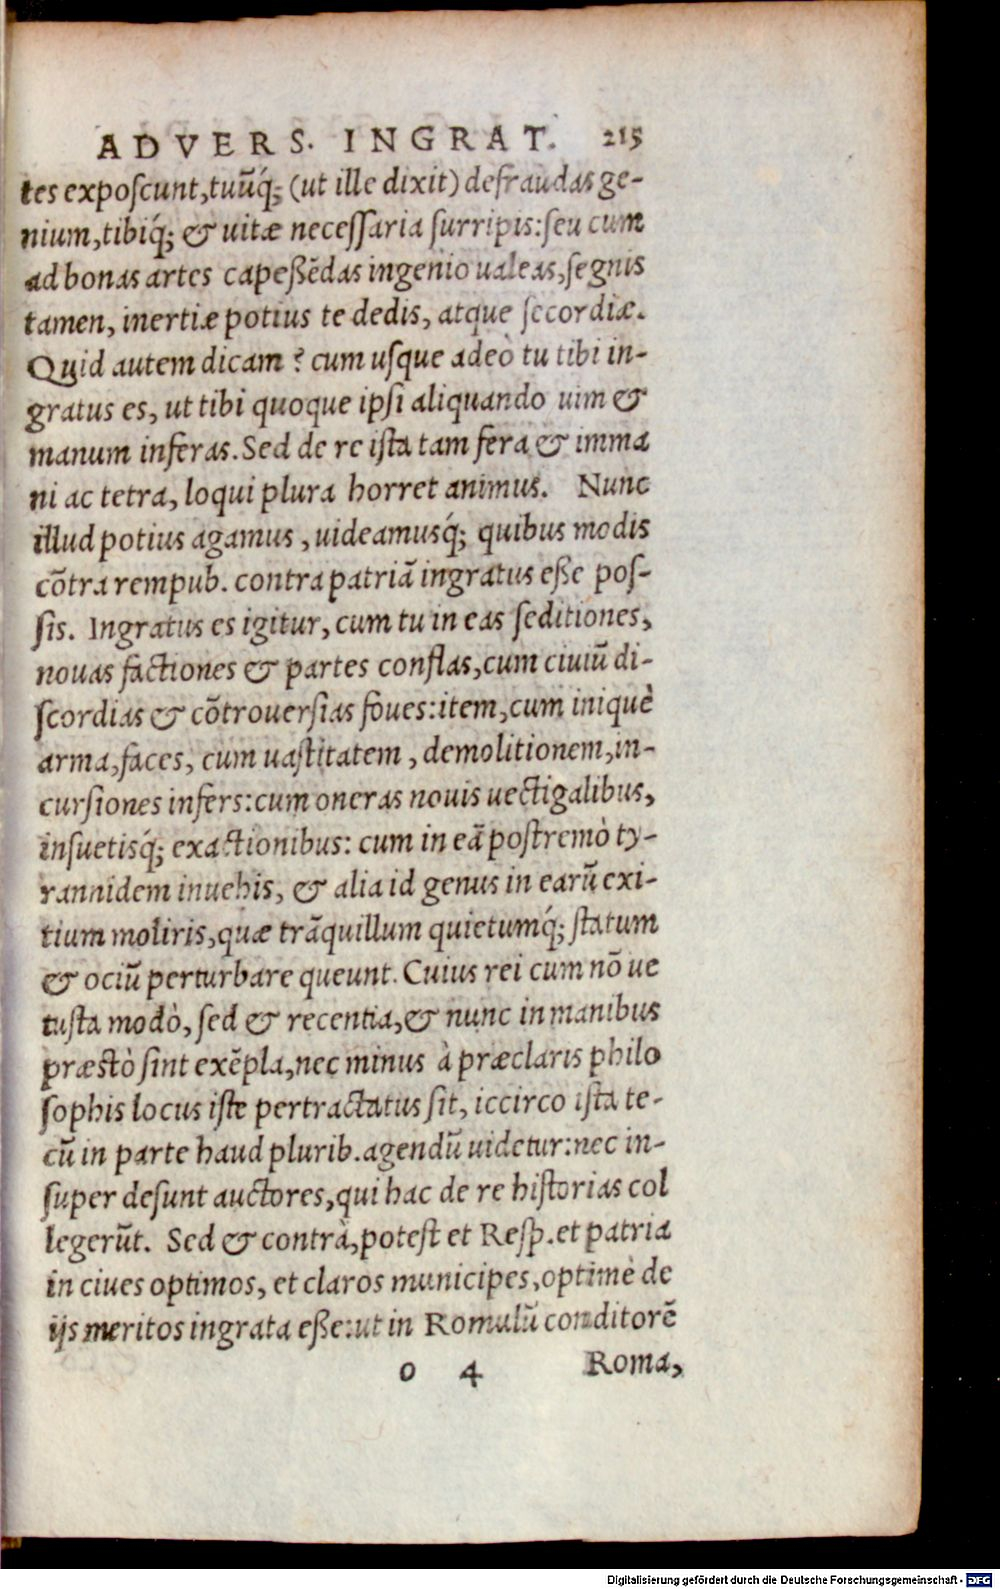 ADVERS. INGRAT. 215
tes exposcunt, tuũq́; (ut ille dixit) defraudas ge-
nium, tibiq́; & uitæ necessaria surripis: seu cum
ad bonas artes capeßẽdas ingenio ualeas, segnis
tamen, inertiæ potius te dedis, atque secordiæ.
Quid autem dicam? cum usque adeò tu tibi in-
gratus es, ut tibi quoque ipsi aliquando uim &
manum inferas. Sed de re ista tam fera & imma
ni ac tetra, loqui plura horret animus. Nunc
illud potius agamus, uideamusq́; quibus modis
cõtra rempub. contra patriã ingratus eße pos-
sis. Ingratus es igitur, cum tu in eas seditiones,
nouas factiones & partes conflas, cum ciuiũ di-
scordias & cõtrouersias foues: item, cum iniquè
arma, faces, cum uastitatem, demolitionem, in-
cursiones infers: cum oneras nouis uectigalibus,
insuetisq́; exactionibus: cum in eã postremò ty-
rannidem inuehis, & alia id genus in earũ exi-
tium moliris, quæ trãquillum quietumq́; statum
& ociũ perturbare queunt. Cuius rei cum nõ ue
tusta modò, sed & recentia, & nunc in manibus
præstò sint exẽpla, nec minus à præclaris philo
sophis locus iste pertractatus sit, iccirco ista te-
cũ in parte haud plurib. agendũ uidetur: nec in-
super desunt auctores, qui hac de re historias col
legerũt. Sed & contrà, potest et Resp. et patria
in ciues optimos, et claros municipes, optimè de
ijs meritos ingrata eße: ut in Romulũ conditorẽ
o 4 Roma,
Digitalisierung gefördert durch die Deutsche Forschungsgemeinschaft - DFG